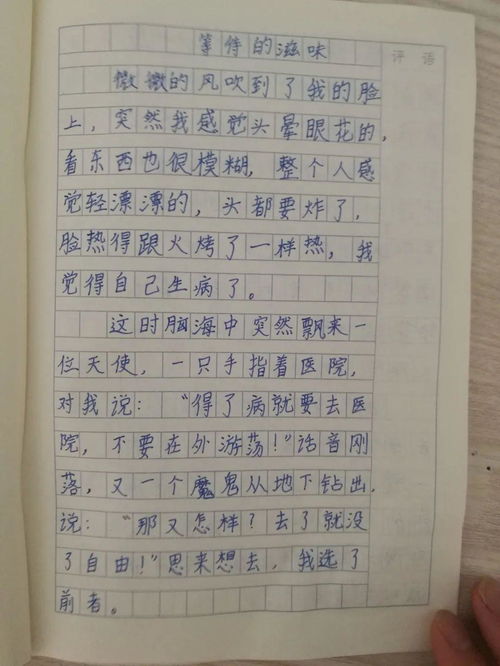 等待的滋味
评语
微微的风吹到了我的脸
上，突然我感觉头晕眼花的，
看东西也很模糊，整个人感
觉轻漂漂的，头都要炸了，
脸热得跟火烤了一样热，我
觉得自己生病了。
这时脑海中突然飘来一
位天使，一只手指着医院，
对我说：“得了病就要去医
院，不要在外游荡！”话音刚
落，又一个魔鬼从地下钻出，
说：“那又怎样？去了就没
了自由！”思来想去，我选了
前者。